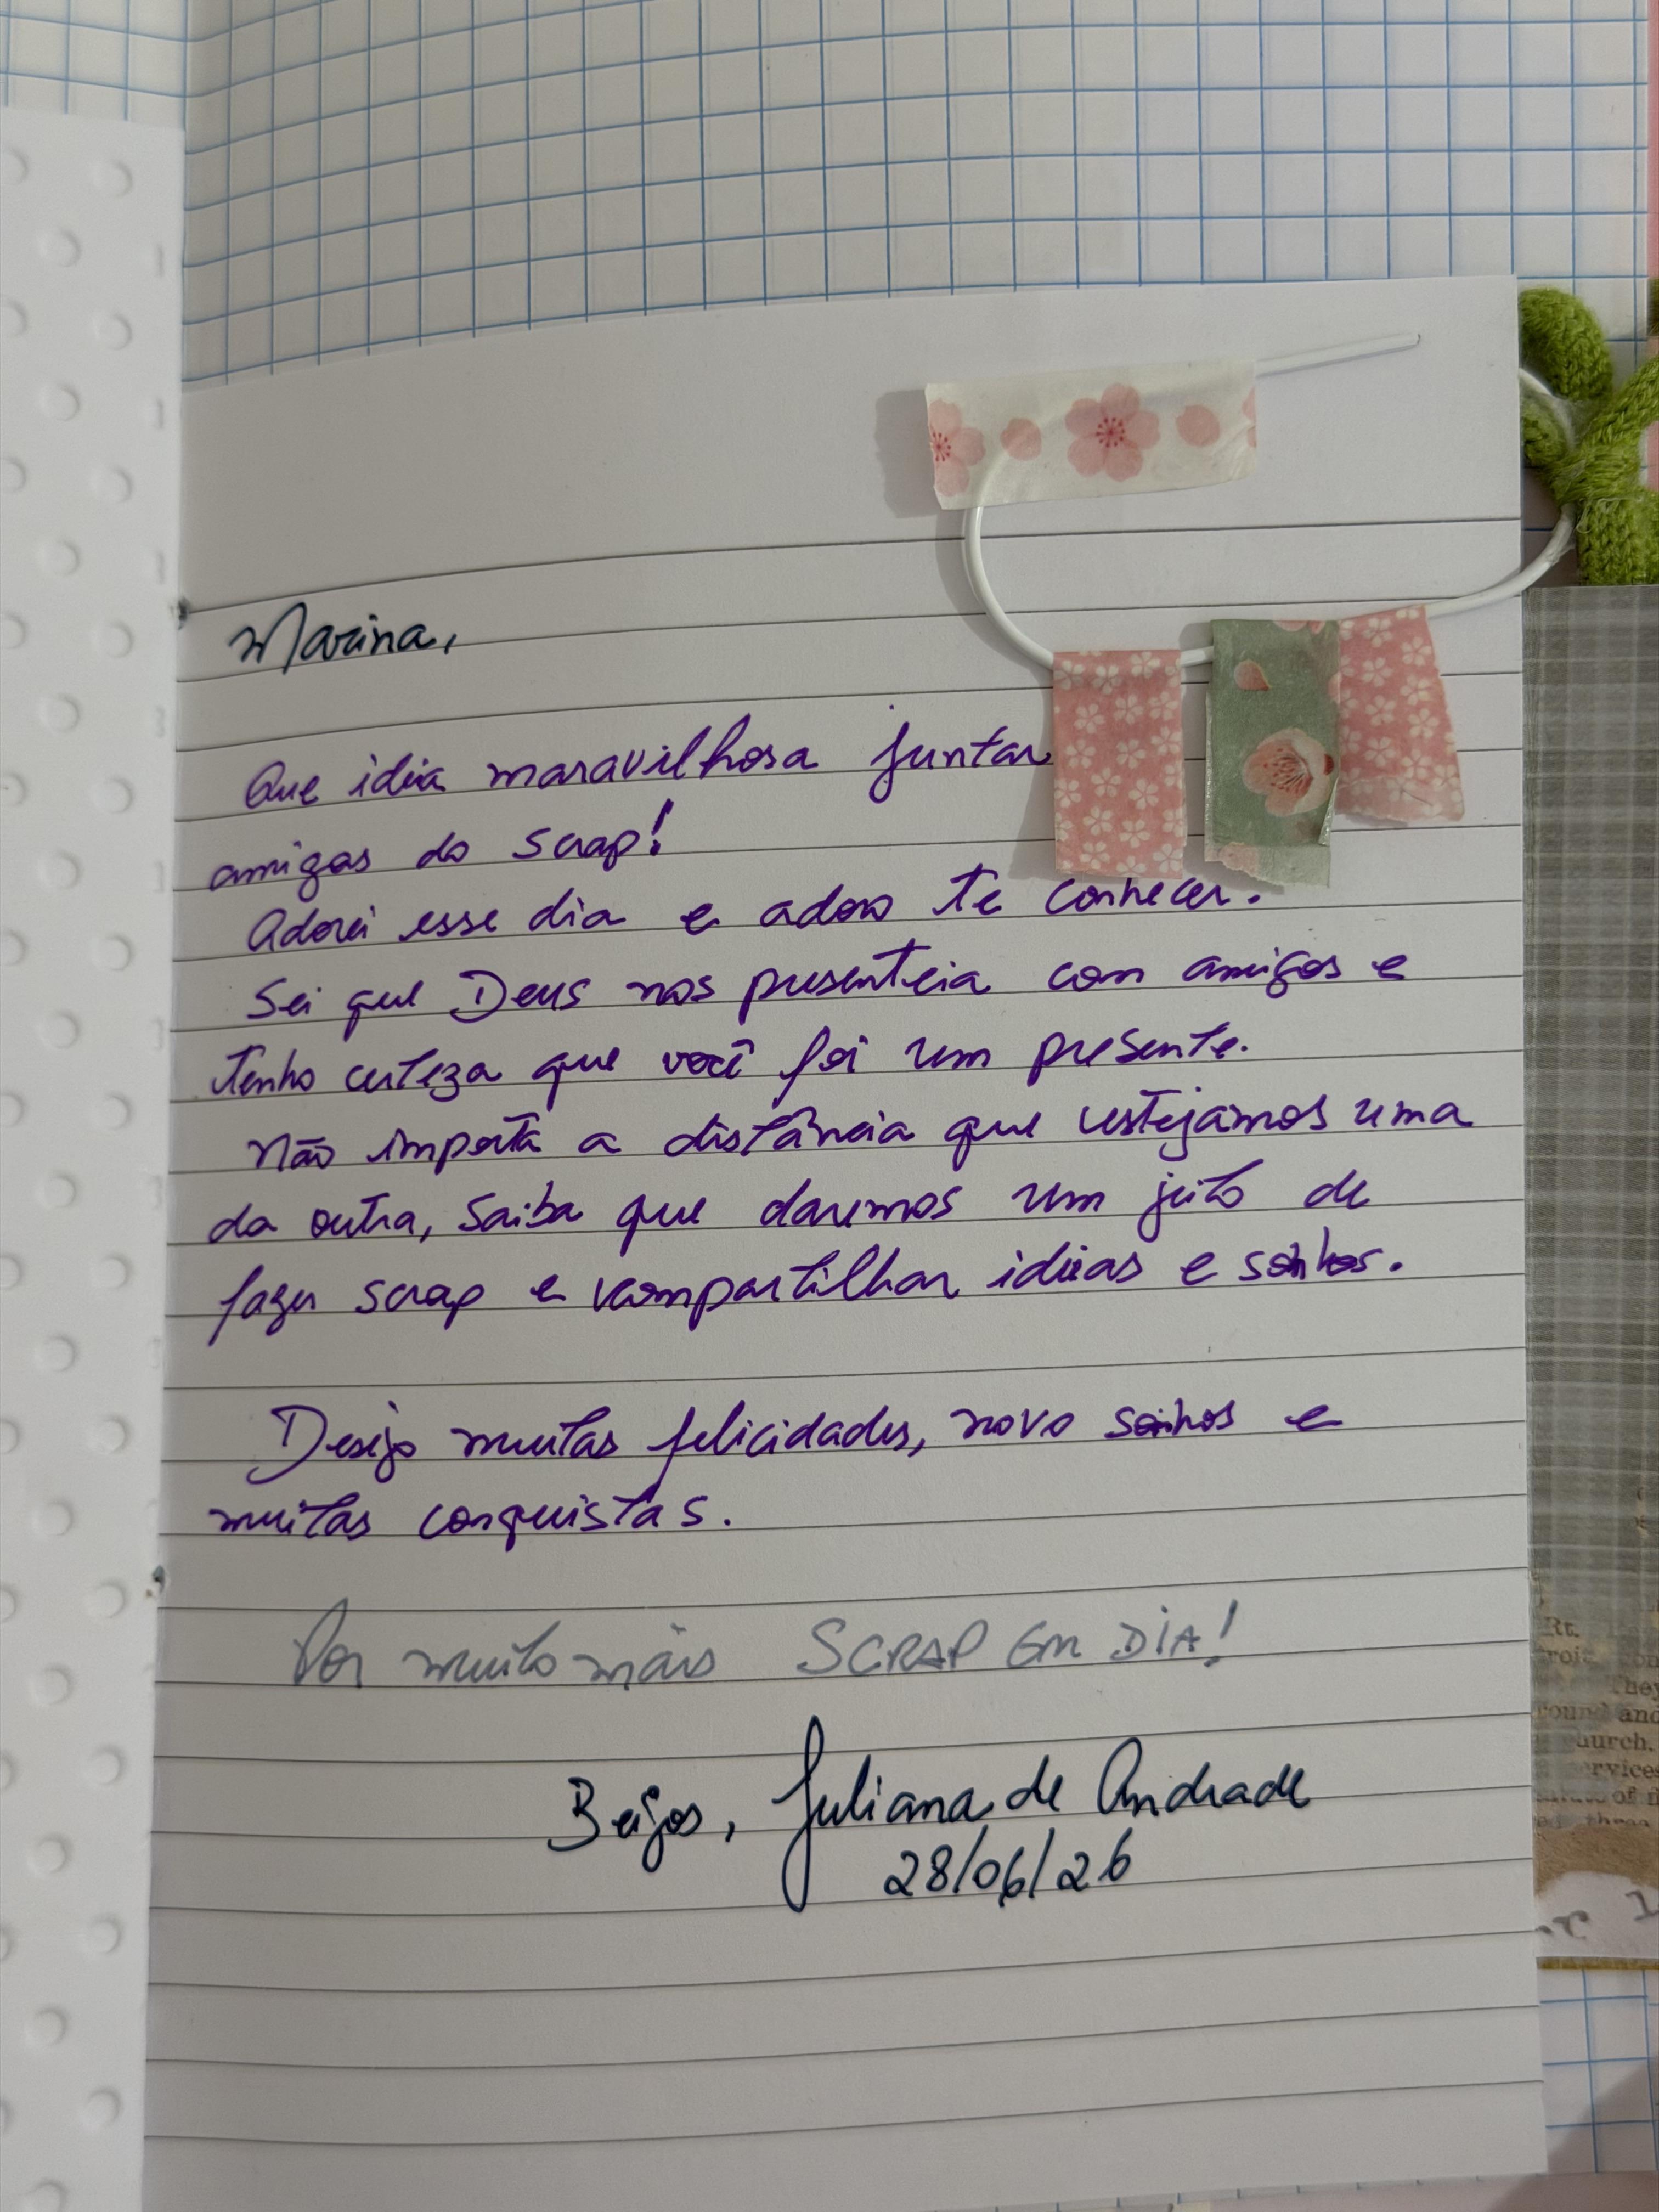 Marina,
Que idia maravilhosa juntar
amigas do scrap!
Adorei esse dia e adoro te conhecer.
Sei que Deus nos presenteia com amigos e
tenho certeza que você foi um presente.
Não importa a distância que estejamos uma
da outra, saiba que daremos um jeito de
fazer scrap e compartilhar idéias e sonhos.
Desejo muitas felicidades, novo sonhos e
muitas conquistas.
Por muito mais SCRAP EM DIA!
Beijos, Juliana de Andrade
28/06/26
Rt.
They
round and
church.
services
of
three